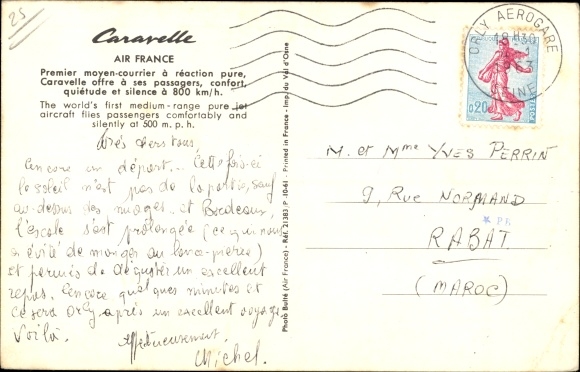 25
Caravelle
AIR FRANCE
Premier moyen-courrier à réaction pure,
Caravelle offre à ses passagers, confort,
quiétude et silence à 800 km/h.
The world's first medium-range pure jet
aircraft flies passengers comfortably and
silently at 500 m.p.h.
Très chers tous,
Encore un départ... Cette fois-ci
le soleil n'est pas de la partie, sauf
au-dessus des nuages, et Bordeaux,
l'escale s'est prolongée (ce qui nous
a évité de manger au lance-pierre)
et permis de déguster un excellent
repas. Encore quelques minutes et
ce sera Orly, après un excellent voyage
Voilà.
Affectueusement.
Michel.
Photo Buité (Air France) - Réf. 21383 P 10-61 - Printed in France - Imp. du Val d'Osne
ORLY AEROGARE
18H30
SEINE
0,20
M. et Mme YVES PERRIN
9, Rue NORMAND
RABAT.
(MAROC)